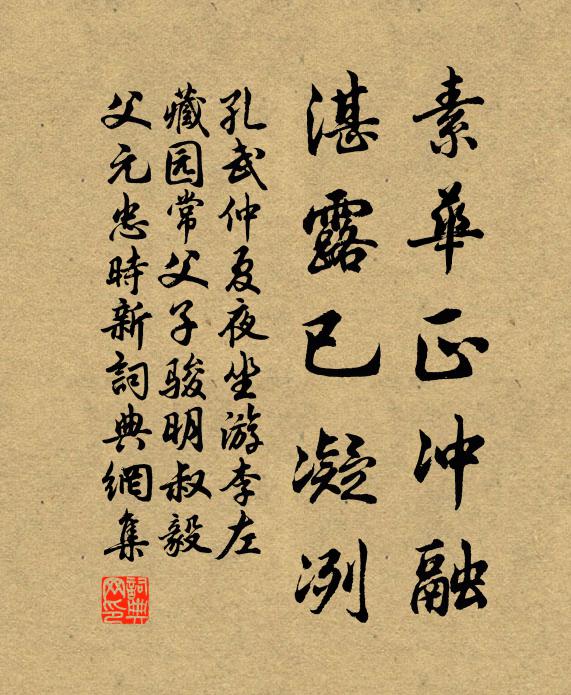 素華正冲融
湛露已凝冽
孔武仲夏夜坐游李左
藏园常父子骏明叔毅
父元忠時新詞典網集
詞典
网印